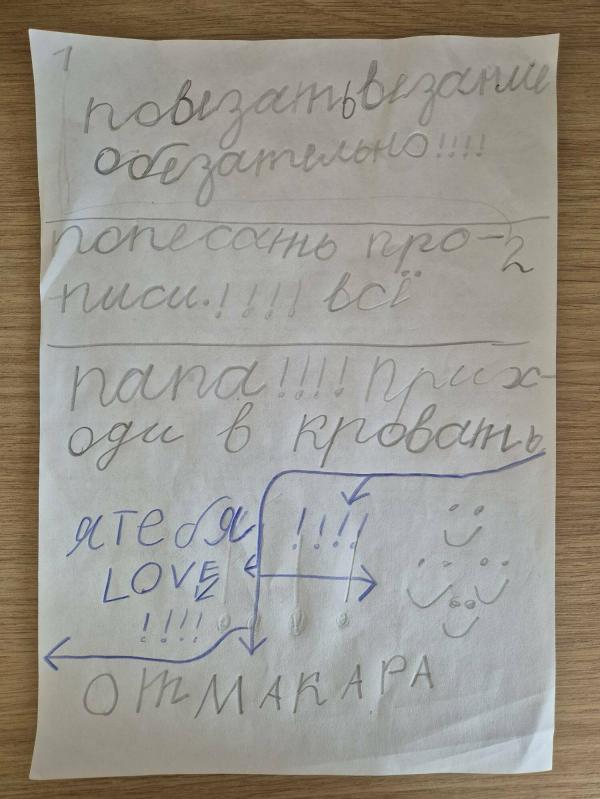 1
повезатьвезание
обезательно!!!!
попесать про-
2
писи.!!!! всї
папа!!!! Прих-
оди в кровать
!!!!
я тебя
LOVE
!!!!
ОТ МАКАРА